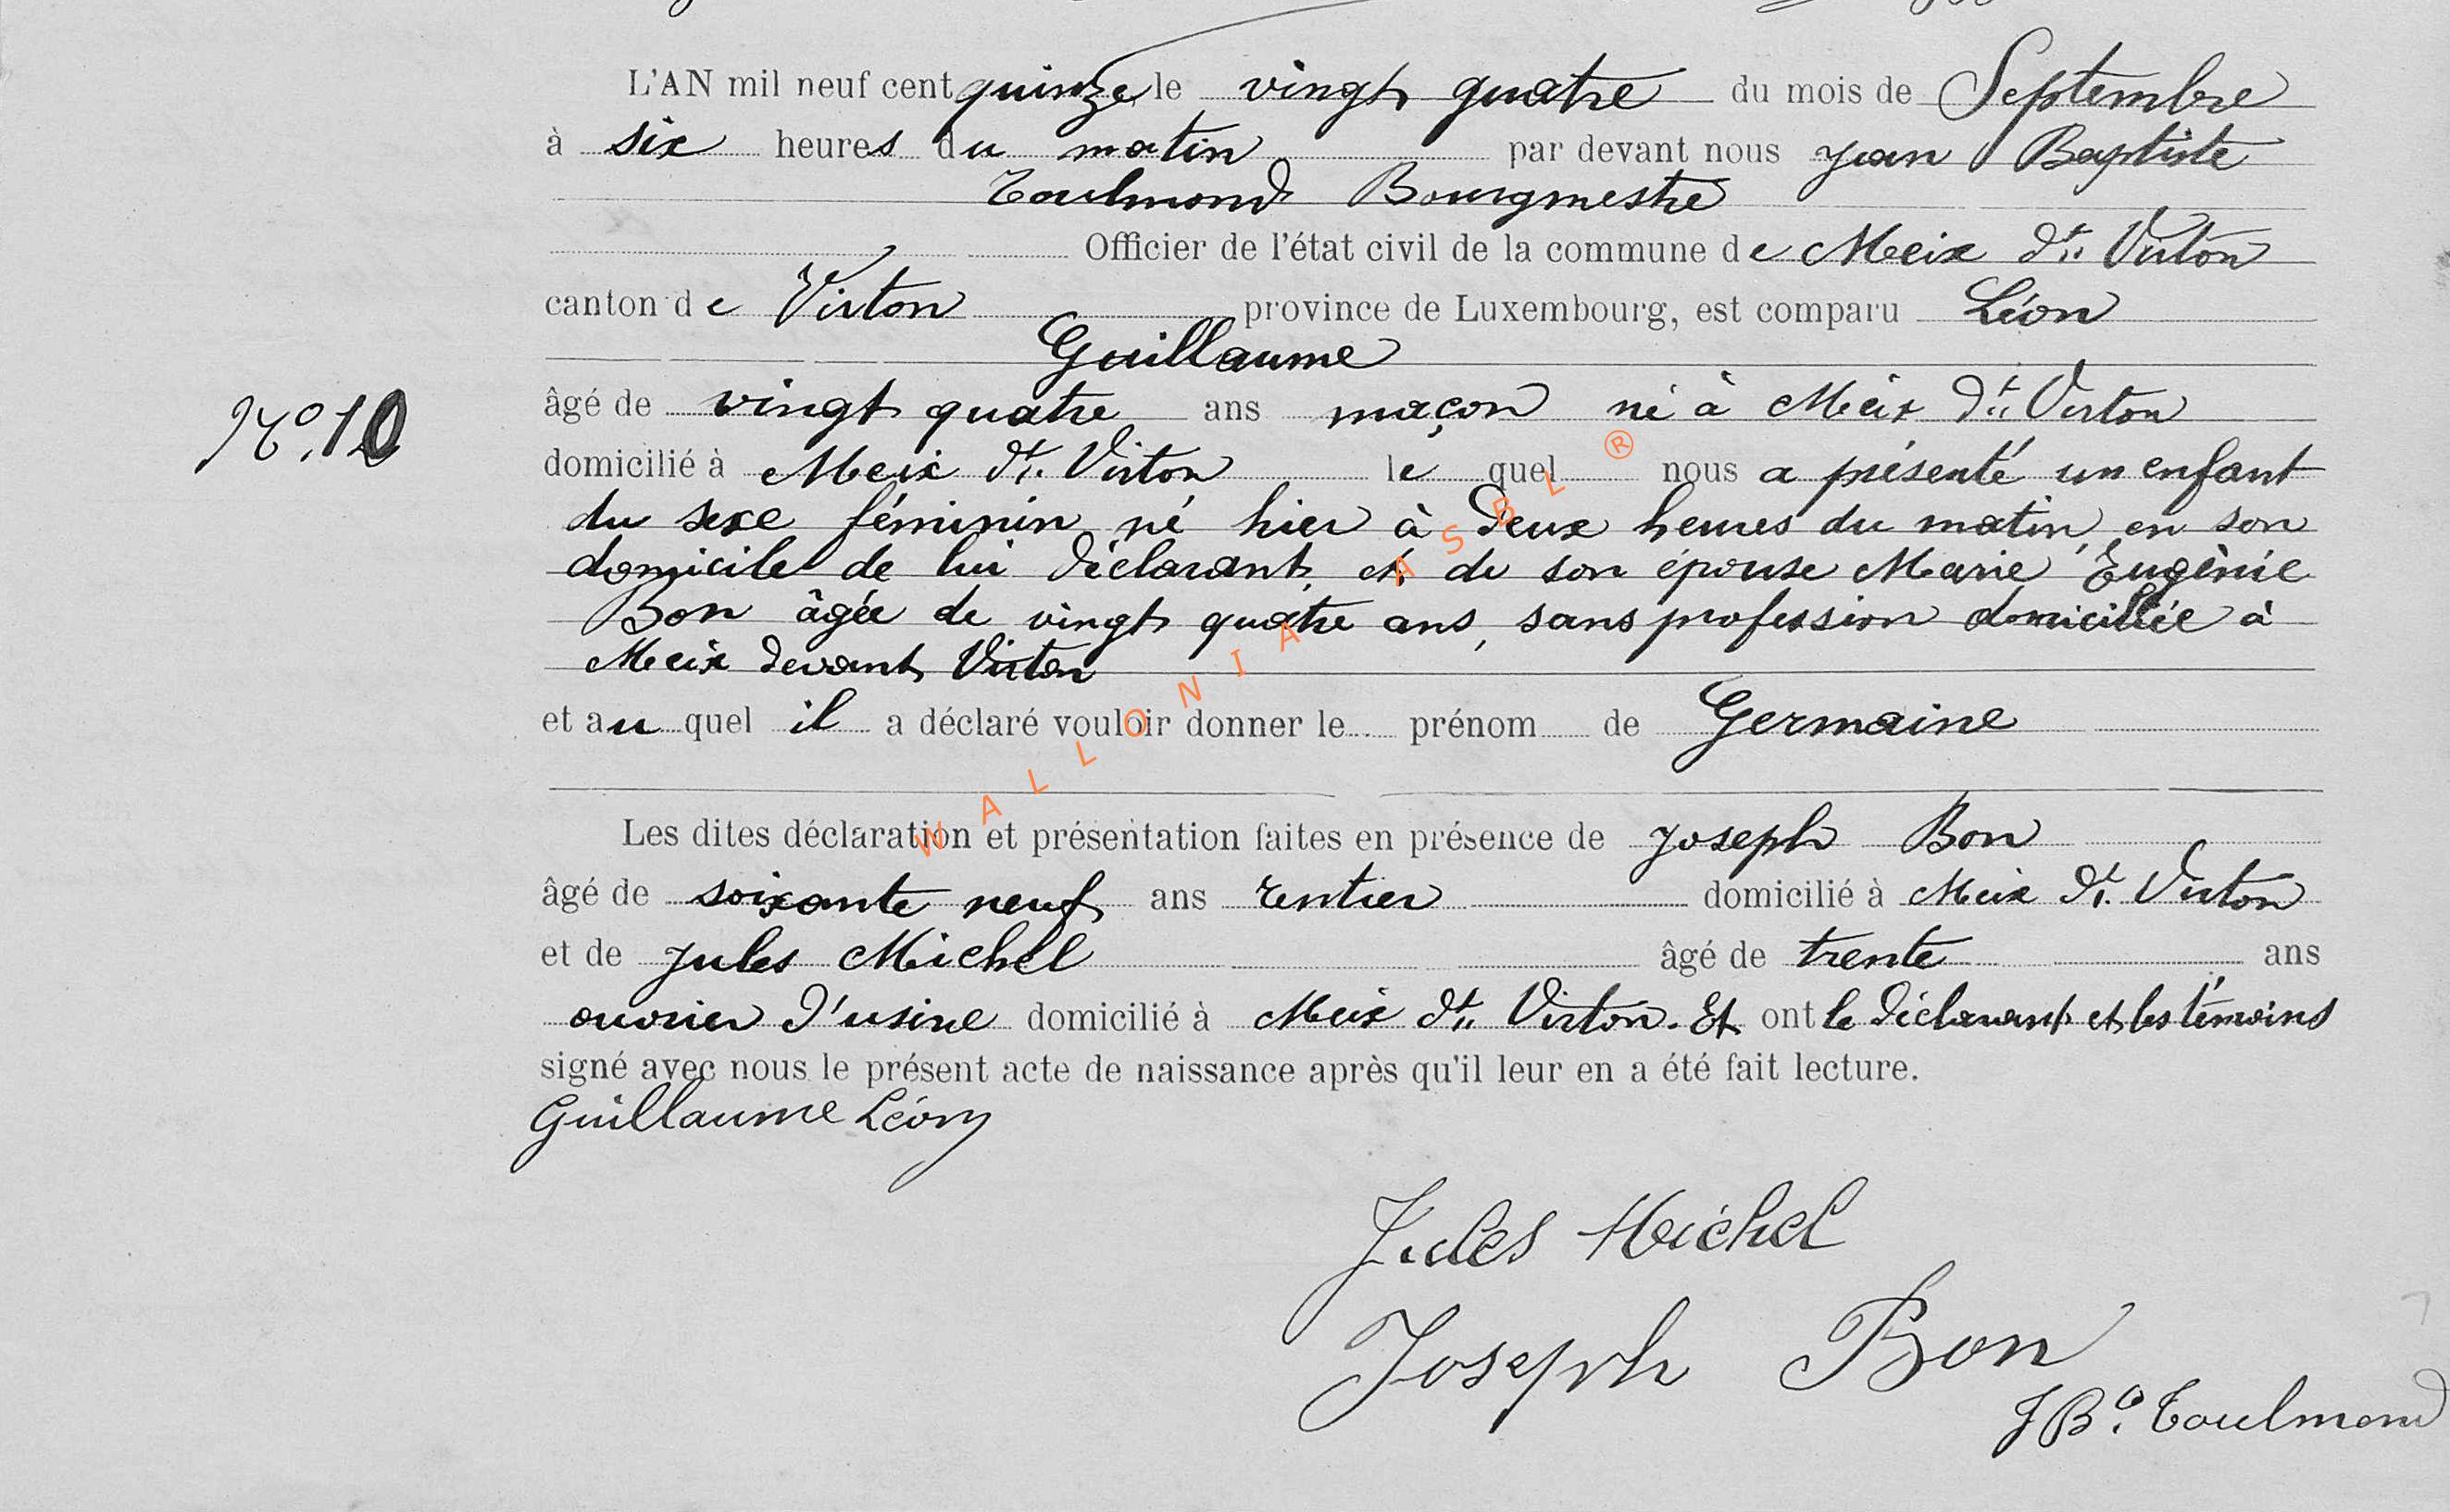 L'AN mil neuf cent quinze le vingt quatre du mois de Septembre
à six heures du matin par devant nous Jean Baptiste
Toulmond Bourgmestre
Officier de l'état civil de la commune de Meix dt. Virton
canton de Virton province de Luxembourg, est comparu Léon
Guillaume
âgé de vingt quatre ans maçon né à Meix dt. Virton
domicilié à Meix dt. Virton le quel nous a présenté un enfant
du sexe féminin, né hier à deux heures du matin, en son
domicile de lui déclarant, et de son épouse Marie Eugénie
Bon âgée de vingt quatre ans, sans profession domiciliée à
Meix devant Virton
et au quel il a déclaré vouloir donner le prénom de Germaine
Les dites déclaration et présentation faites en présence de Joseph Bon
âgé de soixante neuf ans rentier domicilié à Meix dt. Virton
et de Jules Michel âgé de trente ans
ouvrier d'usine domicilié à Meix dt. Virton. Et ont le déclarant et les témoins
signé avec nous le présent acte de naissance après qu'il leur en a été fait lecture.
Guillaume Léon
Jules Michel
Joseph Bon
J Bte. Toulmond
No. 10
WALLONIA ASBL ®